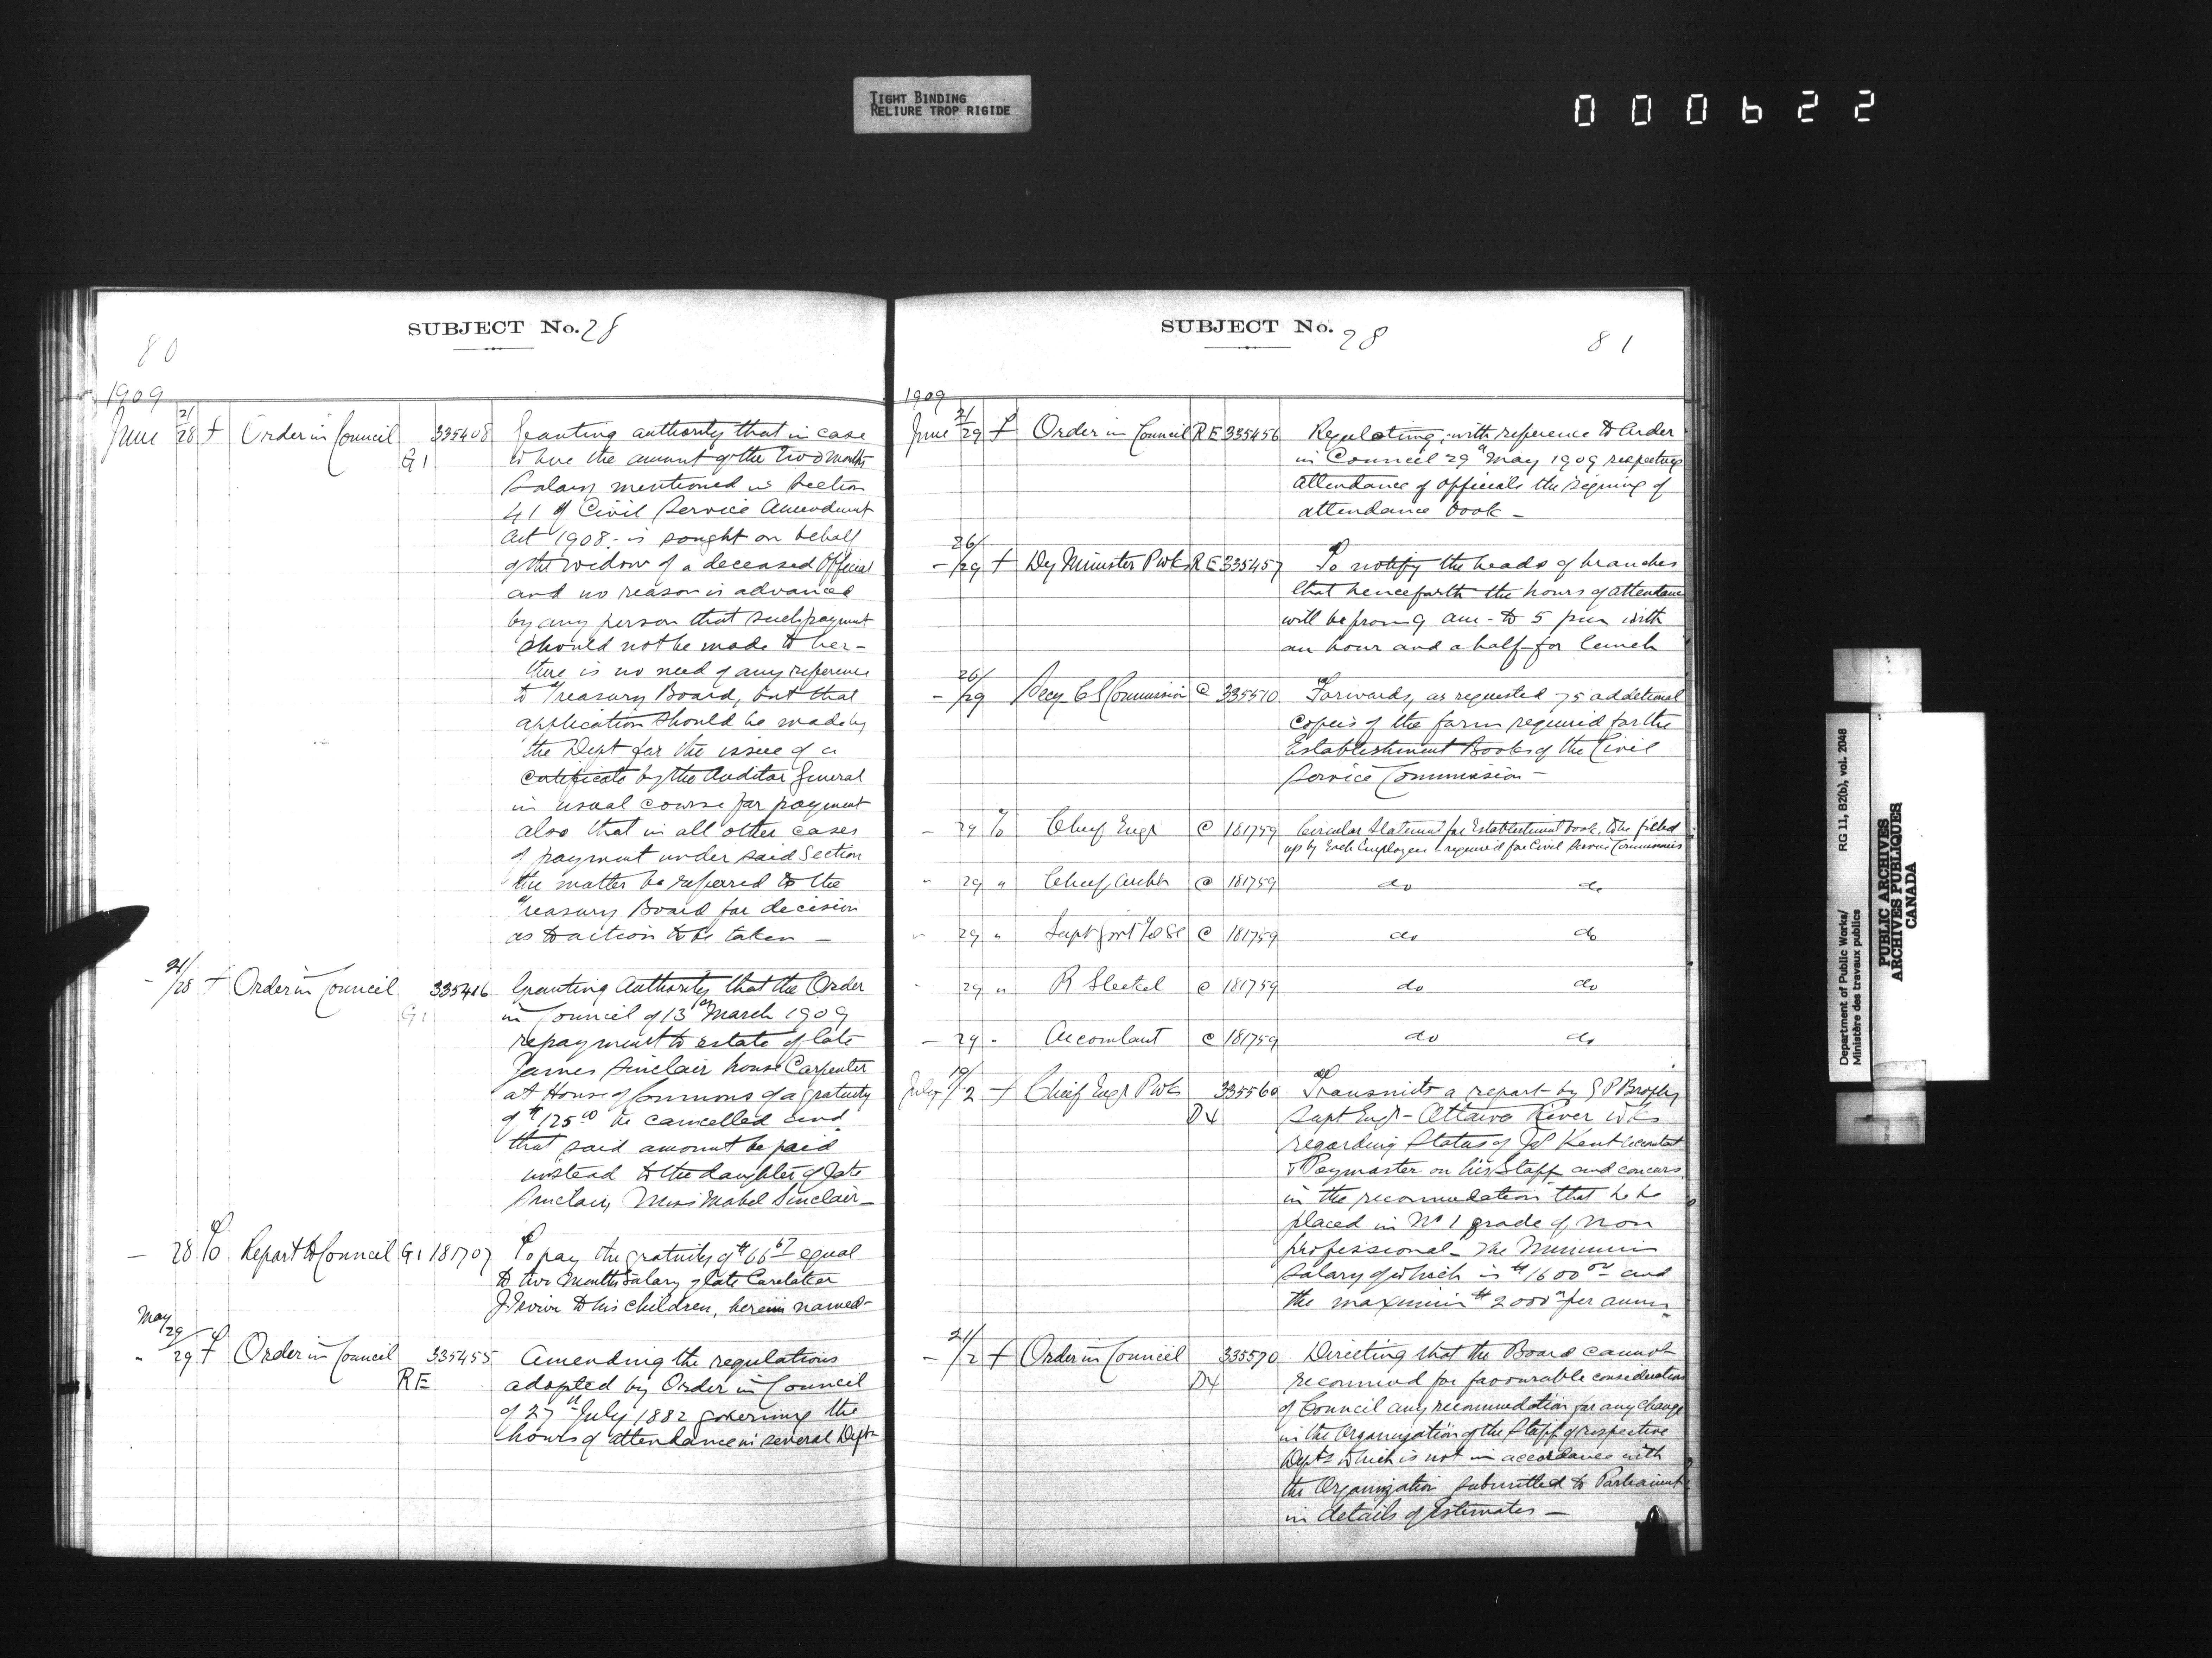 TIGHT BINDING
RELIURE TROP RIGIDE
000622
SUBJECT No. 28
80
1909
June 21/28 f Order in Council G1 335408 Granting authority that in case
where the amount of the two months
Salary mentioned in Section
41 of Civil Service Amendment
Act 1908 - is sought on behalf
of the widow of a deceased Official
and no reason is advanced
by any person that such payment
should not be made to her -
there is no need of any reference
to Treasury Board, but that
application should be made by
the Dept for the issue of a
certificate by the Auditor General
in usual course for payment
also that in all other cases
of payment under said Section
the matter be referred to the
Treasury Board for decision
as to action to be taken -
- 21/28 f Order in Council G1 335416 Granting Authority that the Order
in Council of 13th March 1909
repayment to estate of late
James Sinclair house Carpenter
at House of Commons of a gratuity
of $125.00 be cancelled and
that said amount be paid
instead to the daughter of late
Sinclair, Miss Mabel Sinclair -
- 28 To Report to Council G1 181707 To pay the gratuity of $66.67 equal
to two months Salary of late Caretaker
J Irvine to his children, herein named -
May 29/
" 29 f Order in Council RE 335455 Amending the regulations
adopted by Order in Council
of 27th July 1882 governing the
hours of attendance in several Depts
SUBJECT No. 28
81
1909
June 21/29 f Order in Council RE 335456 Regulating, with reference to Order
in Council 29th May 1909 respecting
attendance of officials the signing of
attendance book -
- 26/29 f Dy Minister Pwks RE 335457 To notify the heads of branches
that henceforth the hours of attendance
will be from 9 am - to 5 pm with
an hour and a half for lunch
- 26/29 Secy C S Commission C 335510 Forwards, as requested 75 additional
copies of the form required for the
Establishment Books of the Civil
Service Commission -
- 29 To Chief Engr C 181759 Circular Statement for Establishment book, to be filled
up by Each Employee required for Civil Service Commission
" 29 " Chief Archt C 181759 do do
" 29 " Supt Govt Tel Se C 181759 do do
" 29 " R Steckel C 181759 do do
- 29 " Accountant C 181759 do do
July 19/2 f Chief Engr Pwks D4 335560 Transmits a report by G P Brophy
Supt Engr - Ottawa River wks
regarding Status of Kent accountant
& Paymaster on his Staff and concurs
in the recommendation that he be
placed in No 1 grade of non
professional - The Minimum
Salary of which is $1600.00 and
the maximum $2000 per annum
- 21/2 f Order in Council D4 335570 Directing that the Board cannot
recommend for favourable consideration
of Council any recommendation for any change
in the Organization of the Staff of respective
Depts which is not in accordance with
the Organization submitted to Parliament
in details of Estimates -
Department of Public Works/ RG 11, B2(b), vol. 2048
Ministère des travaux publics
PUBLIC ARCHIVES
ARCHIVES PUBLIQUES
CANADA